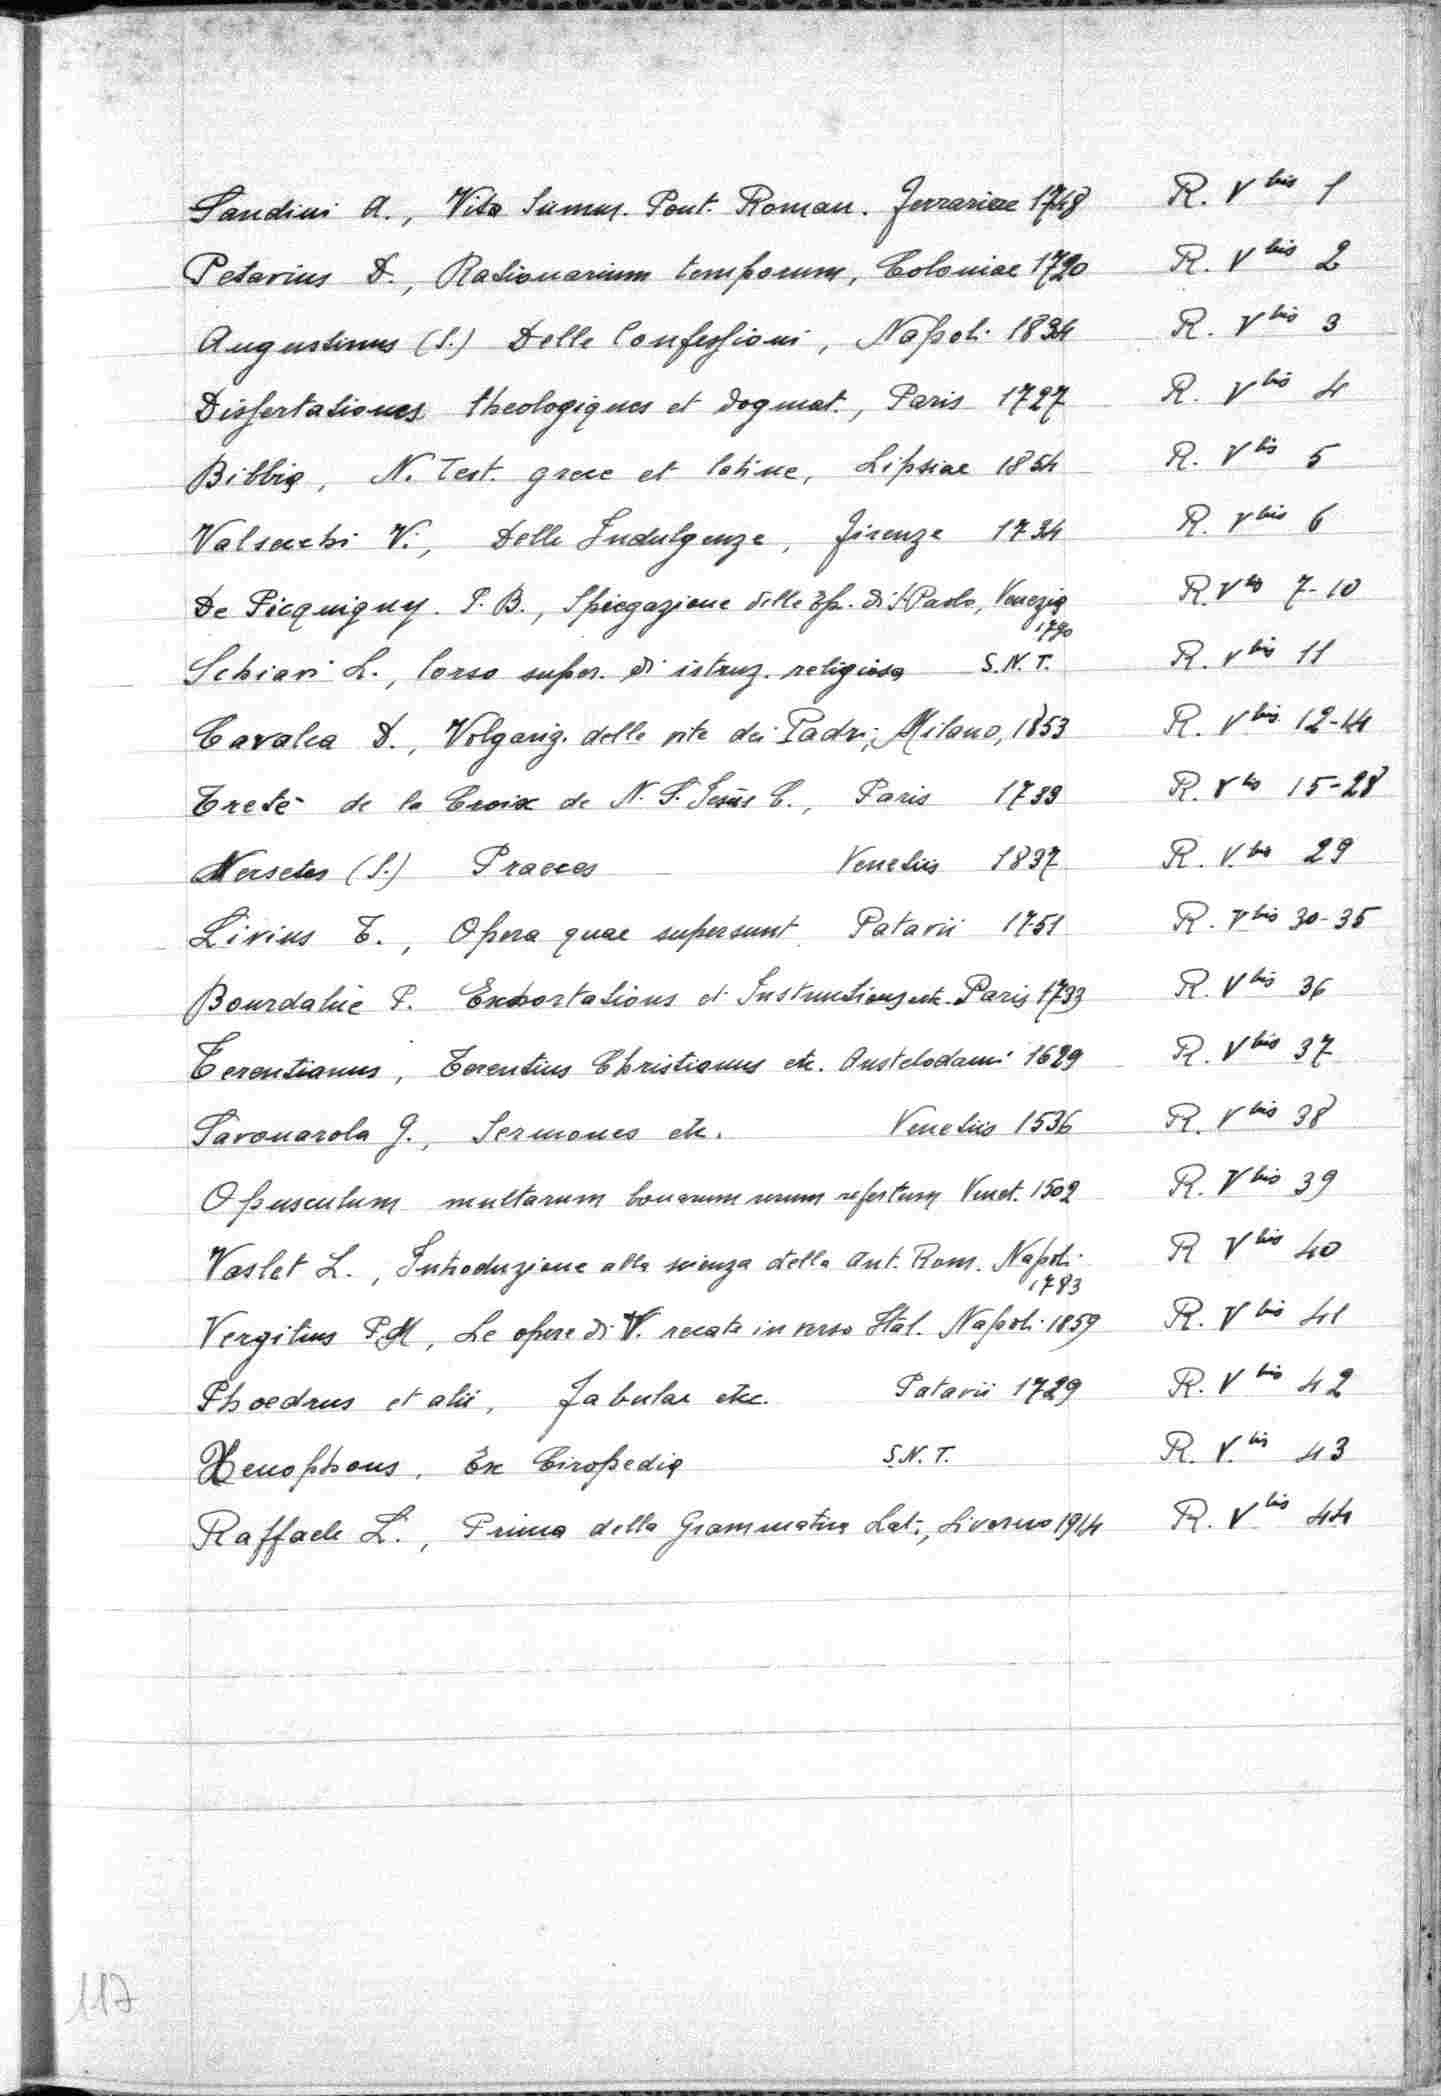 Sandini A., Vita Summ. Pont. Roman. Ferrariae 1748 R. V bis 1
Petavius D., Rationarium temporum, Coloniae 1720 R. V bis 2
Augustinus (S.) Delle Confessioni, Napoli 1834 R. V bis 3
Dissertationes theologiques et dogmat., Paris 1727 R. V bis 4
Bibbia, N. Test. grece et latine, Lipsiae 1854 R. V bis 5
Valsecchi V., Delle Indulgenze, Firenze 1734 R. V bis 6
De Picquigny P. B., Spiegazione delle Ep. di S. Paolo, Venezia R. V bis 7-10
1790
Schiavi L., Corso super. di istruz. religiosa S.N.T. R. V bis 11
Cavalca D., Volgariz. delle vite dei Padri, Milano, 1853 R. V bis 12-14
Treté de la Croix de N. S. Jesus C., Paris 1733 R. V bis 15-28
Nersetes (S.) Preces Venetiis 1837 R. V. bis 29
Livius T., Opera quae supersunt Patavii 1751 R. V bis 30-35
Bourdalue P. Exhortations et Instructions etc. Paris 1733 R. V bis 36
Terentianus, Terentius Christianus etc. Amstelodami 1629 R. V bis 37
Savonarola G., Sermones etc. Venetiis 1536 R. V bis 38
Opusculum multarum bonarum rerum refertum Venet. 1502 R. V bis 39
Vaslet L., Introduzione alla scienza della Ant. Rom. Napoli R V bis 40
1783
Vergilius P.M, Le opere di V. recate in verso Ital. Napoli 1859 R. V bis 41
Phoedrus et alii, Fabulae etc. Patavii 1729 R. V bis 42
Xenophons, Ex Ciropedia S.N.T. R. V. bis 43
Raffaele L., Prima della Grammatica Lat., Livorno 1914 R. V bis 44
117